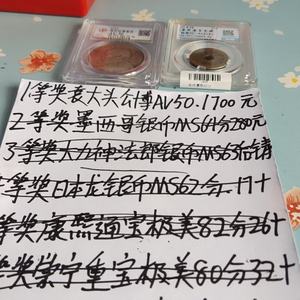 1等奖袁大头公博AU50.1700元
2等奖墨西哥银币MS64分280元
3等奖大力神法郎银币MS63
等奖日本龙银币MS62分.17+
等奖康熙通宝极美82分26+
等奖崇宁重宝极美80分32+